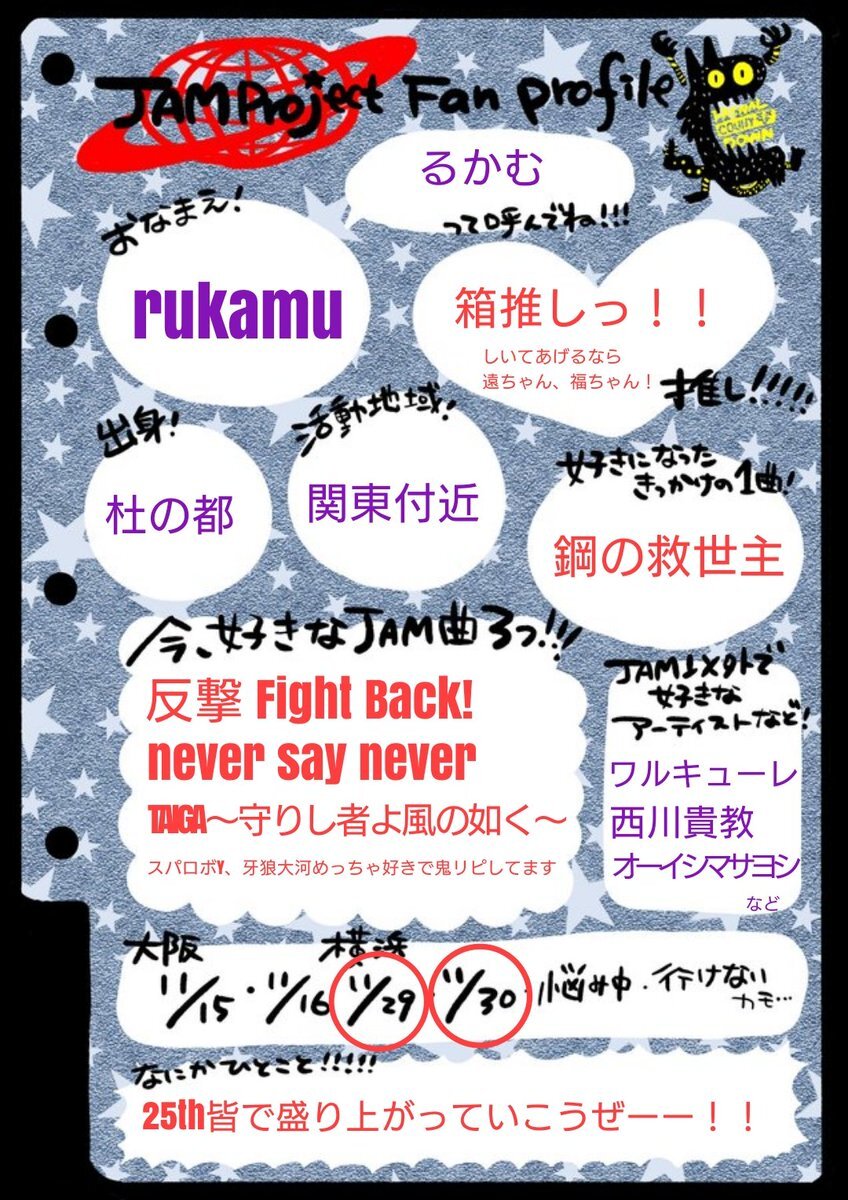 JAM Project Fan profile
るかむ
って呼んでね!!!
おなまえ!
rukamu
箱推しっ！！
しいてあげるなら
遠ちゃん、福ちゃん！
推し!!!!!
出身!
杜の都
活動地域!
関東付近
好きになった
きっかけの1曲!
鋼の救世主
今、好きなJAM曲3つ!!!
反撃 Fight Back!
never say never
TAIGA～守りし者よ風の如く～
スパロボY、牙狼大河めっちゃ好きで鬼リピしてます
JAM以外で
好きな
アーティストなど!
ワルキューレ
西川貴教
オーイシマサヨシ
など
大阪 横浜
11/15・11/16 11/29・11/30・悩み中・行けない
カモ…
なにかひとこと!!!!!
25th皆で盛り上がっていこうぜーー！！